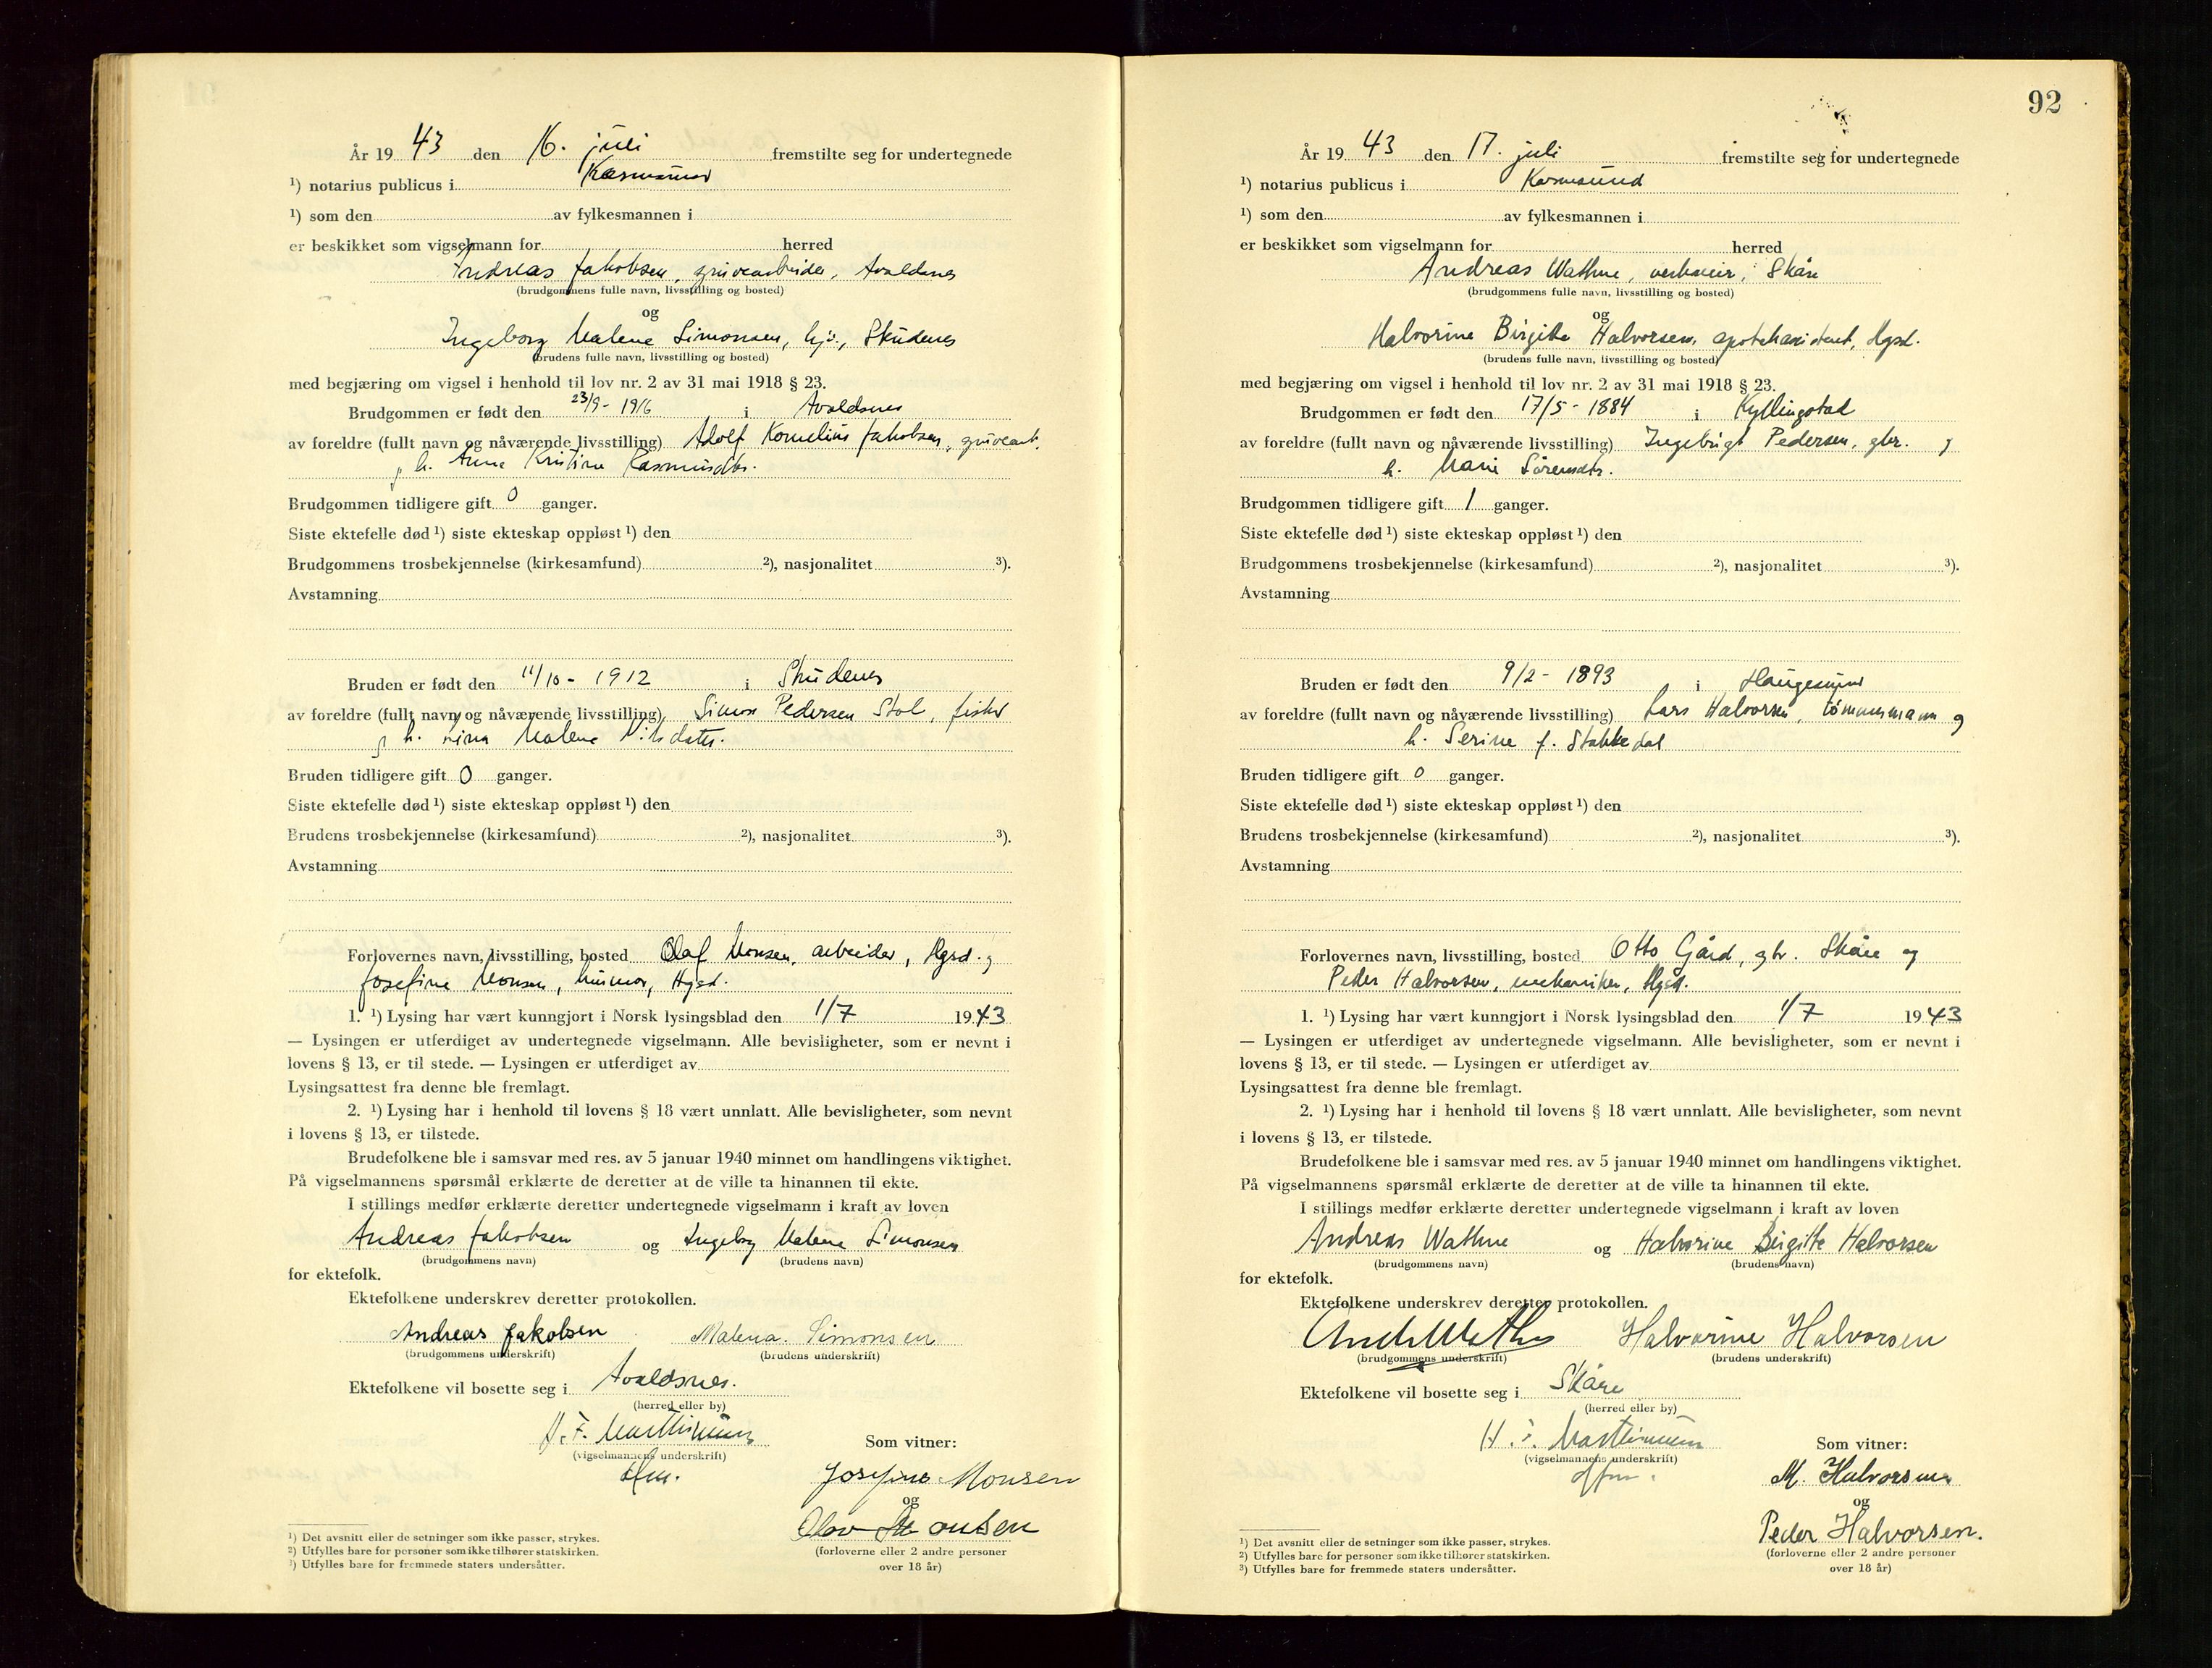 År 19 43 den 16. juli fremstilte seg for undertegnede
¹) notarius publicus i Karmsund
¹) som den av fylkesmannen i
er beskikket som vigselmann for herred
Andreas Jakobsen, gruvearbeider, Avaldsnes
(brudgommens fulle navn, livsstilling og bosted)
og
Ingeborg Malene Simonsen, hj., Skudenes
(brudens fulle navn, livsstilling og bosted)
med begjæring om vigsel i henhold til lov nr. 2 av 31 mai 1918 § 23.
Brudgommen er født den 23/9 - 1916 i Avaldsnes
av foreldre (fullt navn og nåværende livsstilling) Adolf Kornelius Jakobsen, gruvearb.
og h. Anna Kristine Rasmusdtr.
Brudgommen tidligere gift 0 ganger.
Siste ektefelle død ¹) siste ekteskap oppløst ¹) den
Brudgommens trosbekjennelse (kirkesamfund) ²), nasjonalitet ³).
Avstamning
Bruden er født den 11/10 - 1912 i Skudenes
av foreldre (fullt navn og nåværende livsstilling) Simon Pedersen Stol, fisker
og h. Lina Malene Nilsdatter.
Bruden tidligere gift 0 ganger.
Siste ektefelle død ¹) siste ekteskap oppløst ¹) den
Brudens trosbekjennelse (kirkesamfund) ²), nasjonalitet ³).
Avstamning
Forlovernes navn, livsstilling, bosted Olaf Monsen, arbeider, Hgsd. og
Josefine Monsen, husmor, Hgsd.
1. ¹) Lysing har vært kunngjort i Norsk lysingsblad den 1/7 1943
— Lysingen er utferdiget av undertegnede vigselmann. Alle bevisligheter, som er nevnt i
lovens § 13, er til stede. — Lysingen er utferdiget av
Lysingsattest fra denne ble fremlagt.
2. ¹) Lysing har i henhold til lovens § 18 vært unnlatt. Alle bevisligheter, som nevnt
i lovens § 13, er tilstede.
Brudefolkene ble i samsvar med res. av 5 januar 1940 minnet om handlingens viktighet.
På vigselmannens spørsmål erklærte de deretter at de ville ta hinannen til ekte.
I stillings medfør erklærte deretter undertegnede vigselmann i kraft av loven
Andreas Jakobsen og Ingeborg Malene Simonsen
(brudgommens navn) (brudens navn)
for ektefolk.
Ektefolkene underskrev deretter protokollen.
Andreas Jakobsen Malena Simonsen
(brudgommens underskrift) (brudens underskrift)
Ektefolkene vil bosette seg i Avaldsnes.
(herred eller by)
H. F. Marthinusen
(vigselmannens underskrift)
Som vitner:
Josefine Monsen
og
Olav Monsen
(forloverne eller 2 andre personer
over 18 år)
¹) Det avsnitt eller de setninger som ikke passer, strykes.
²) Utfylles bare for personer som ikke tilhører statskirken.
³) Utfylles bare for fremmede staters undersåtter.
92
År 19 43 den 17. juli fremstilte seg for undertegnede
¹) notarius publicus i Karmsund
¹) som den av fylkesmannen i
er beskikket som vigselmann for herred
Andreas Wathne, verkseier, Skåre
(brudgommens fulle navn, livsstilling og bosted)
og
Halvorine Birgitte Halvorsen, apotekassistent, Hgsd.
(brudens fulle navn, livsstilling og bosted)
med begjæring om vigsel i henhold til lov nr. 2 av 31 mai 1918 § 23.
Brudgommen er født den 17/5 - 1884 i Kyllingstad
av foreldre (fullt navn og nåværende livsstilling) Ingebrigt Pedersen, gbr. og
h. Marie Sørensdtr.
Brudgommen tidligere gift 1 ganger.
Siste ektefelle død ¹) siste ekteskap oppløst ¹) den
Brudgommens trosbekjennelse (kirkesamfund) ²), nasjonalitet ³).
Avstamning
Bruden er født den 9/2 - 1893 i Haugesund
av foreldre (fullt navn og nåværende livsstilling) Lars Halvorsen, tømmermann og
h. Serine f. Stakkedal
Bruden tidligere gift 0 ganger.
Siste ektefelle død ¹) siste ekteskap oppløst ¹) den
Brudens trosbekjennelse (kirkesamfund) ²), nasjonalitet ³).
Avstamning
Forlovernes navn, livsstilling, bosted Otto Gård, gbr. Skåre og
Peder Halvorsen, mekaniker, Hgsd.
1. ¹) Lysing har vært kunngjort i Norsk lysingsblad den 1/7 1943
— Lysingen er utferdiget av undertegnede vigselmann. Alle bevisligheter, som er nevnt i
lovens § 13, er til stede. — Lysingen er utferdiget av
Lysingsattest fra denne ble fremlagt.
2. ¹) Lysing har i henhold til lovens § 18 vært unnlatt. Alle bevisligheter, som nevnt
i lovens § 13, er tilstede.
Brudefolkene ble i samsvar med res. av 5 januar 1940 minnet om handlingens viktighet.
På vigselmannens spørsmål erklærte de deretter at de ville ta hinannen til ekte.
I stillings medfør erklærte deretter undertegnede vigselmann i kraft av loven
Andreas Wathne og Halvorine Birgitte Halvorsen
(brudgommens navn) (brudens navn)
for ektefolk.
Ektefolkene underskrev deretter protokollen.
And. Wathne Halvorine Halvorsen
(brudgommens underskrift) (brudens underskrift)
Ektefolkene vil bosette seg i Skåre
(herred eller by)
H. F. Marthinusen
(vigselmannens underskrift)
Som vitner:
M. Halvorsen
og
Peder Halvorsen.
(forloverne eller 2 andre personer
over 18 år)
¹) Det avsnitt eller de setninger som ikke passer, strykes.
²) Utfylles bare for personer som ikke tilhører statskirken.
³) Utfylles bare for fremmede staters undersåtter.